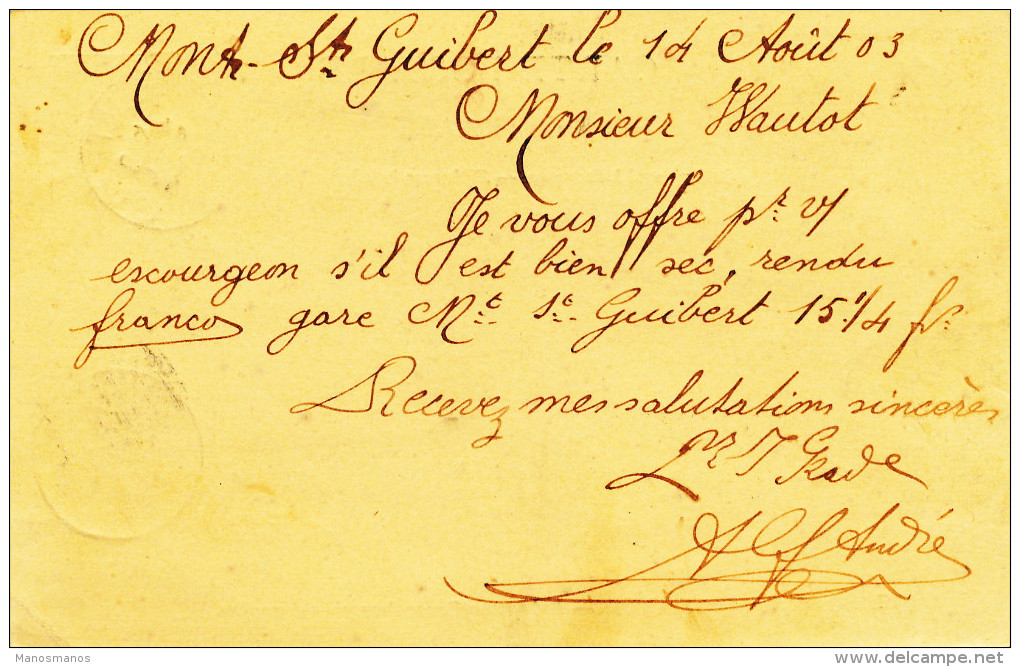 Mont-St Guibert le 14 Août 03
Monsieur Wautot
Je vous offre pr v/
escourgeon s'il est bien sec, rendu
franco gare Mt St Guibert 15 1/4 fr
Recevez mes salutations sincères
pr J
André
Manosmanos